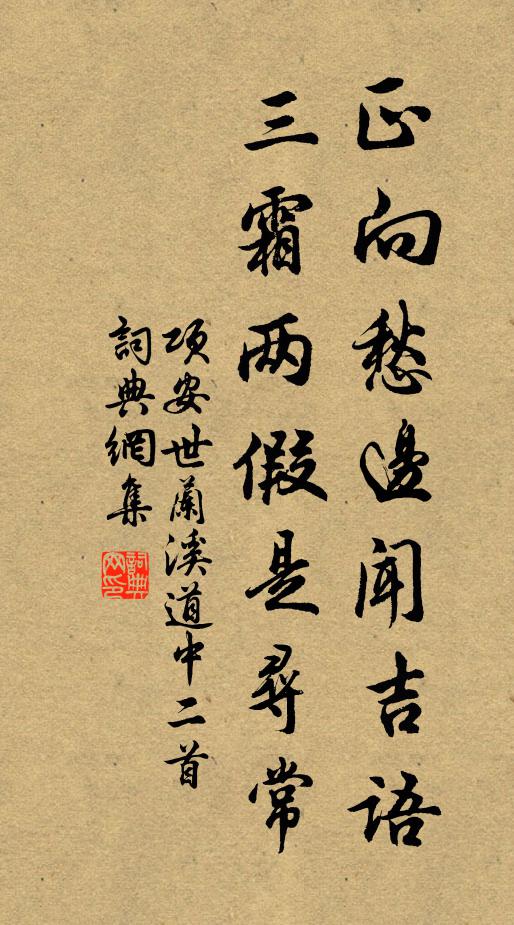 正向愁邊闻吉語
三霜两假是尋常
項安世蘭溪道中二首
詞典網集
詞典網印